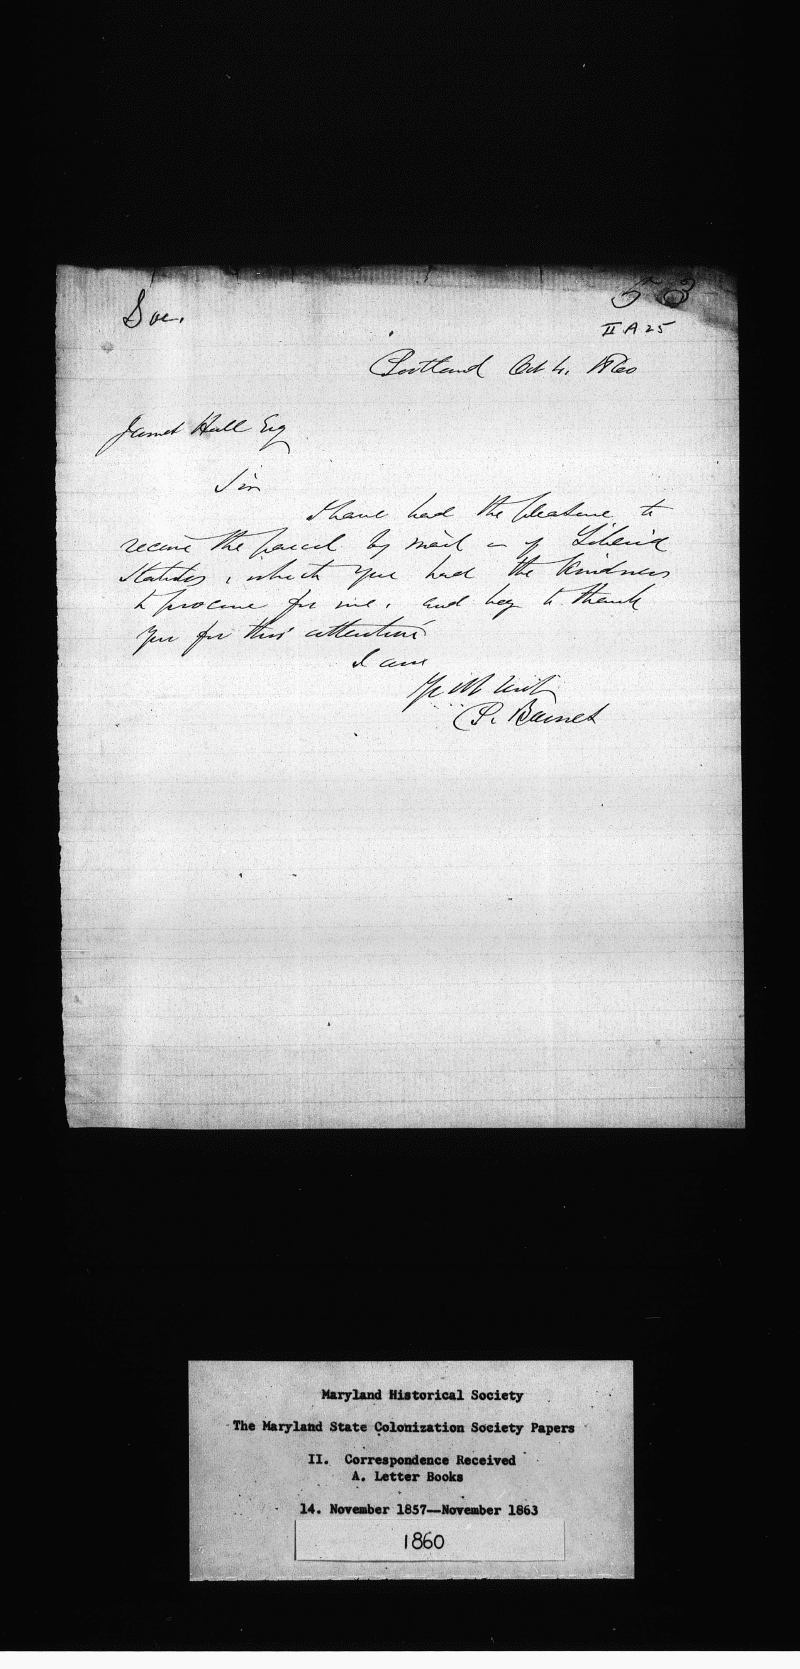 Doc.
53
II A 25
Portland Oct 4. 1860
James Hall Esq
Sir
I have had the pleasure to
receive the parcel by mail of Liberia
Statutes, which you had the kindness
to procure for me, and beg to thank
you for this attention
I am
P. Barnes
Maryland Historical Society
The Maryland State Colonization Society Papers
II. Correspondence Received
A. Letter Books
14. November 1857—November 1863
1860